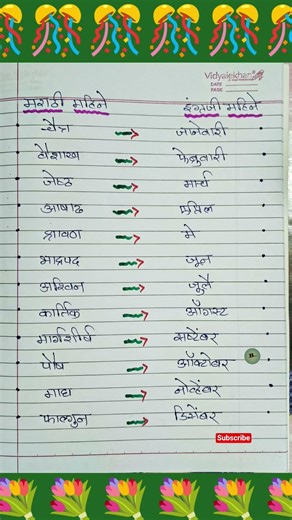 Vidyalekhan
DATE
PAGE
मराठी महिने इंग्रजी महिने
चैत्र जानेवारी
वैशाख फेब्रुवारी
जेष्ठ मार्च
आषाढ एप्रिल
श्रावण मे
भाद्रपद जून
अश्विन जुलै
कार्तिक ऑगस्ट
मार्गशीर्ष सप्टेंबर
पौष ऑक्टोबर
माघ नोव्हेंबर
फाल्गुन डिसेंबर
Subscribe